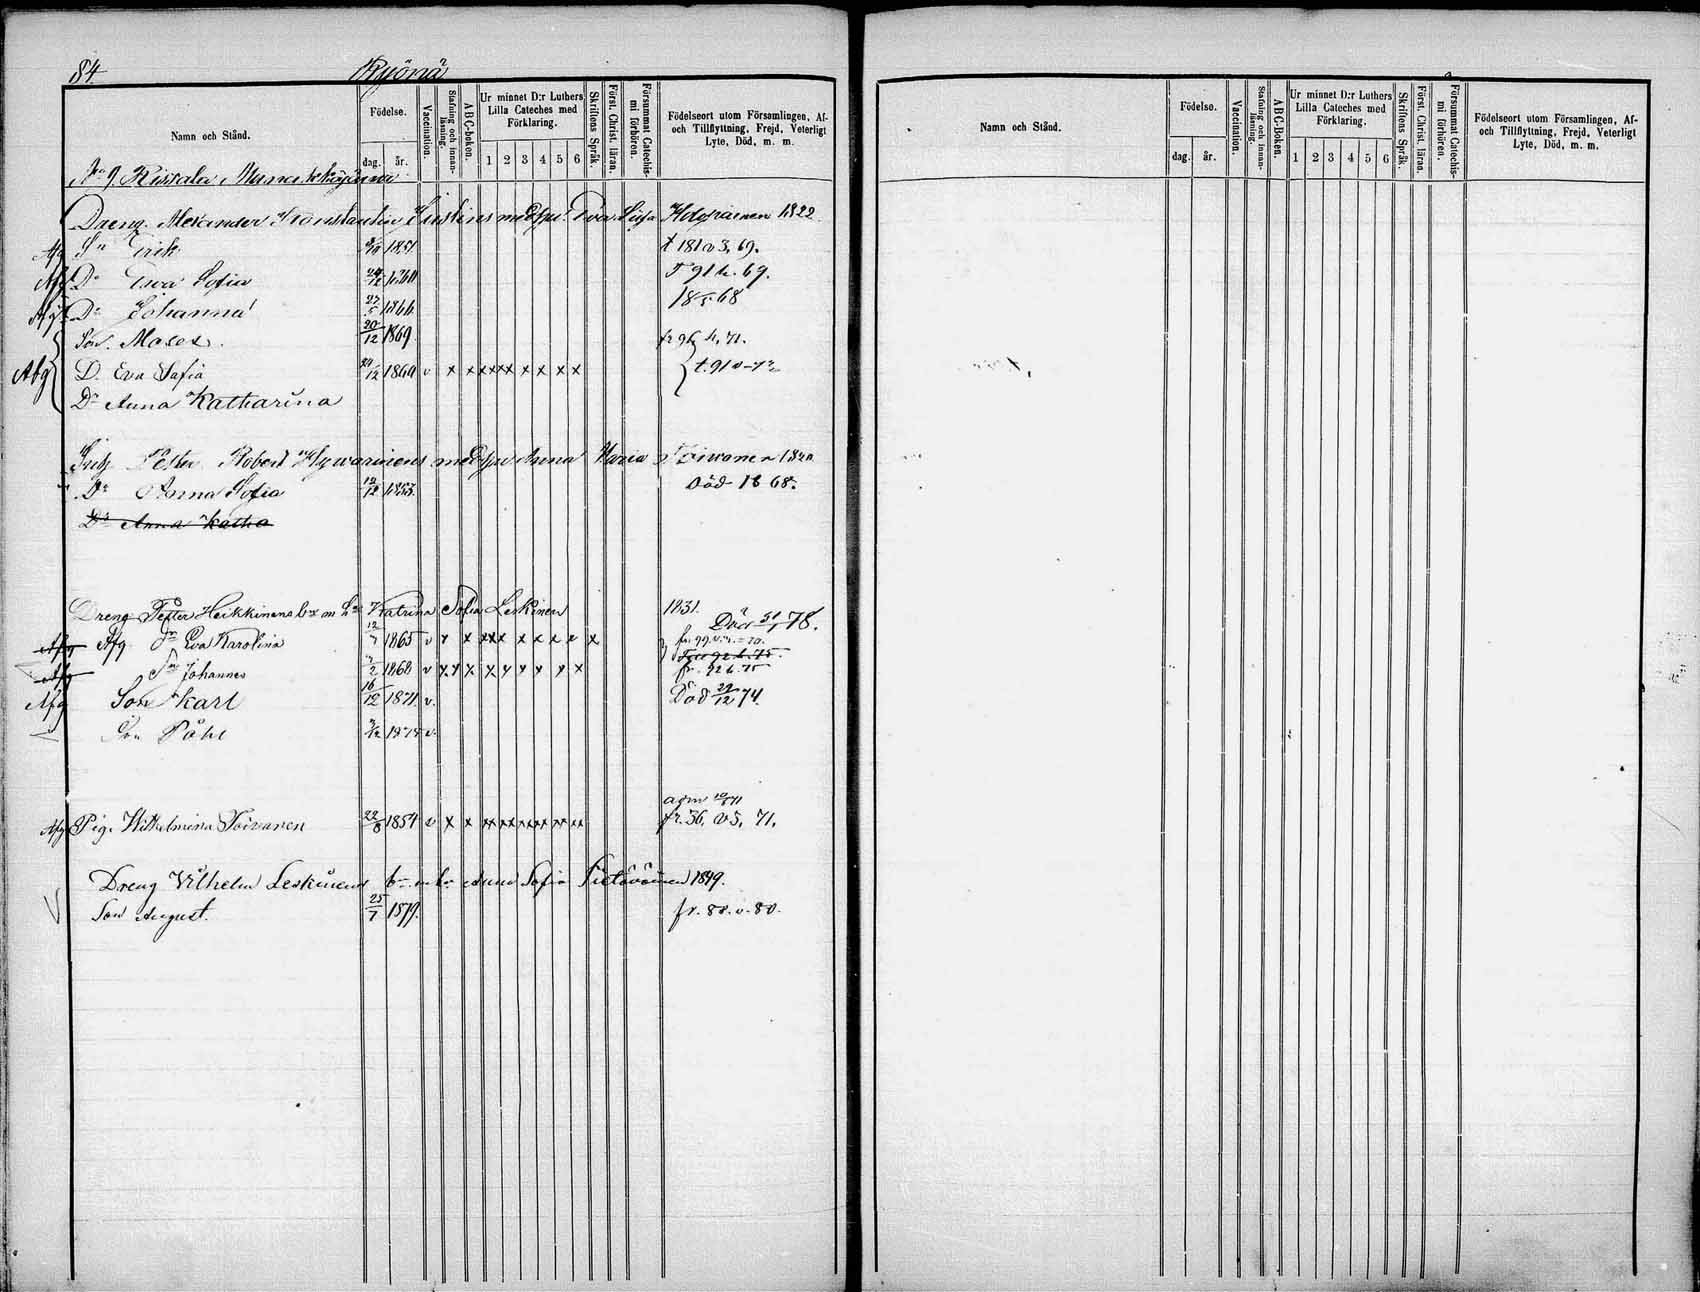 84.
Ryönä
Namn och Stånd.
Födelse.
dag. år.
Vaccination.
Stafning och innanläsning.
ABC-boken.
Ur minnet D:r Luthers Lilla Cateches med Förklaring.
1 2 3 4 5 6
Skriftens Språk.
Först. Christ. läran.
Försummat Catechismi förhören.
Födelseort utom Församlingen, Af- och Tillflyttning, Frejd, Veterligt Lyte, Död, m. m.
No 9. Rissala
Dreng. Alexander Konstantin med Eva 1822
Afg Sn Erik 1851 t 181 v 3, 69.
Afg Dr Eva Sofia 24/12 1860 91 h. 69.
Afg Dr Johanna 27/5 1866 68
Son. Moses. 20/12 1869 fr 96 h, 71.
Afg D. Eva Safia 24/12 1860 v x x x x x x x x x x t. 91 v
Dr Anna Katharina
Petter Robert Anna Maria Toivanen
Dr Anna Sofia 12/12 1853 Död 1868.
Dr Anna Katha
Dreng Petter Heikkinens m h Katrina Sofia Leskinen 1831.
Död 31/1 78.
Afg Afg Dr Eva Karolina 12/7 1865 v x x x x x x x x x x
Afg Sn Johannes 1868 v x x x x x x x x x fr. 92 h. 75
Afg Son Karl 16/12 1871. v. Död 29/12 74.
Son Påhl v.
Afg Pig. Wilhelmina Toivanen 22/8 1854 v x x x x x x x x x x x fr. 36, v 5, 71,
Dreng Vilhelm Leskinens Anna Sofia 1849.
Son August. 25/7 1879. fr. 88. v. 80.
Namn och Stånd.
Födelse.
dag. år.
Vaccination.
Stafning och innanläsning.
ABC-Boken.
Ur minnet D:r Luthers Lilla Cateches med Förklaring.
1 2 3 4 5 6
Skriftens Språk.
Först. Christ. läran.
Försummat Catechismi förhören.
Födelseort utom Församlingen, Af- och Tillflyttning, Frejd, Veterligt Lyte, Död, m. m.